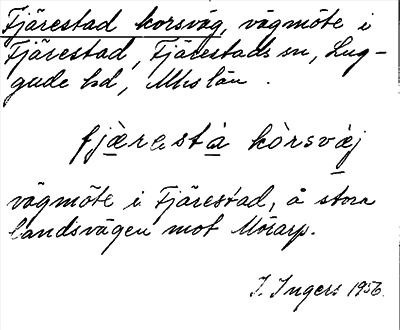 Fjärestad korsväg, vägmöte i
Fjärestad, Fjärestads sn, Lug-
gude hd, Mlhs län.
fjæ̀restà kòrsvæ̀j
vägmöte i Fjärestad, å stora
landsvägen mot Mörarp.
I. Ingers 1956.